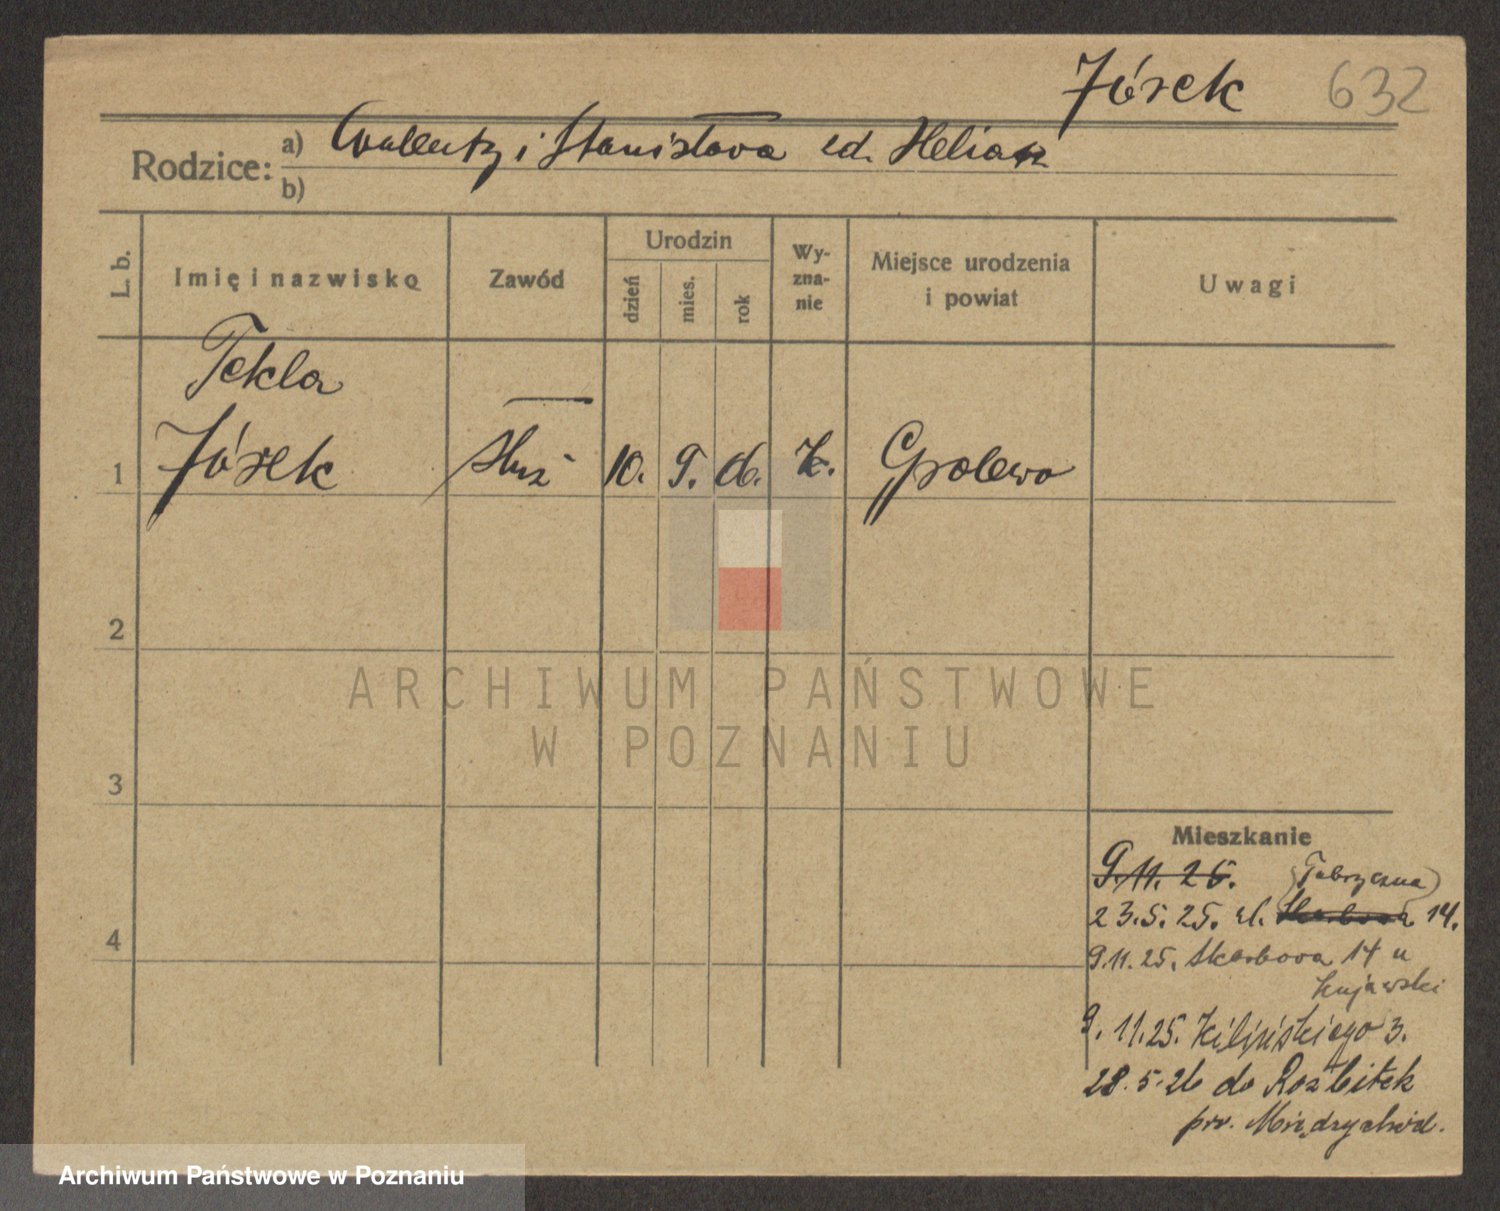 Józek 632
Rodzice: a) Walenty i Stanisława zd. Heliak
b)
L. b. Imię i nazwisko Zawód Urodzin dzień mies. rok Wy-zna-nie Miejsce urodzenia i powiat Uwagi
Tekla
1 Józek służ 10. 9. 06. k. Grolewo
2
ARCHIWUM PAŃSTWOWE
W POZNANIU
3
Mieszkanie
9.11.25. Fabryczna
23.5.25. ul. Skarbowa 14.
4
9.11.25. Skarbowa 14 u
Kujawski
9.11.25. Kilińskiego 3.
28.5.26 do Rozbitek
pow. Międzychód.
Archiwum Państwowe w Poznaniu